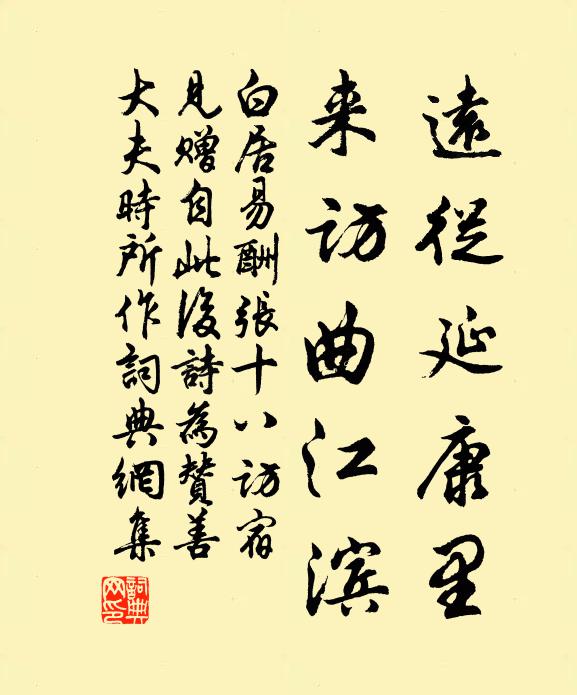 遠從延康里
来訪曲江滨
白居易酬張十八訪宿
見贈自此後詩為贊善
大夫時所作詞典網集
詞典網印